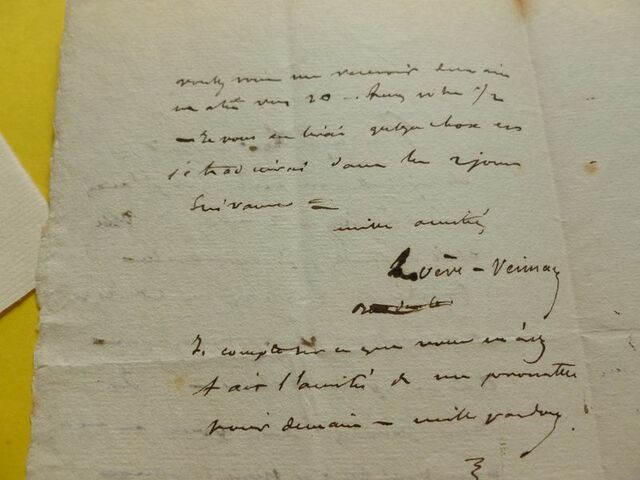 voulez vous me recevoir demain
matin vers 10
- Je vous en lirai quelque chose et
je traduirai dans les 2 jours
suivants =
mille amitiés
Loève-Veimars
Je compte sur ce que vous m'avez
fait l'amitié de me promettre
pour demain - mille pardons.